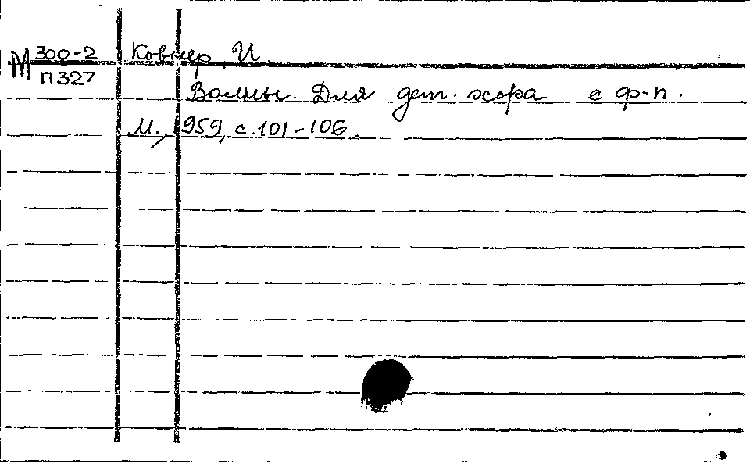 М 300-2 Ковнер, И.
П327
Волны. Для дет. хора с ф-п.
М., 1959, с. 101-106.